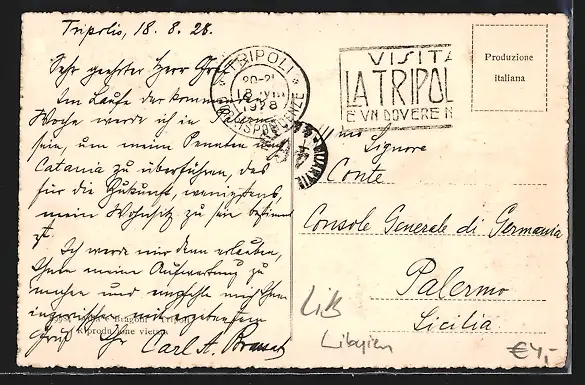 Tripolis, 18. 8. 28.
Sehr geehrter Herr Graf
Im Laufe der kommenden
Woche werde ich in
sein, um meine Penaten nach
Catania zu überführen, das
für die Zukunft, wenigstens,
mein Wohnsitz zu sein bestimmt
ist.
Ich werde mir dann erlauben,
Ihnen meine Aufwartung zu
machen und empfehle mich Ihnen
inzwischen mit ergebenstem
Gruß Ihr Carl A.
Bragoni - Tripoli
Riproduzione vietata
TRIPOLI
20-21
18 VIII
1928
CORRISPONDENZE
VISITA
LA TRIPOL
E VN DOVERE N
Produzione
italiana
Ill mo
Signore
Conte
Console Generale di Germania
Palermo
Sicilia
Libyien
€4,-